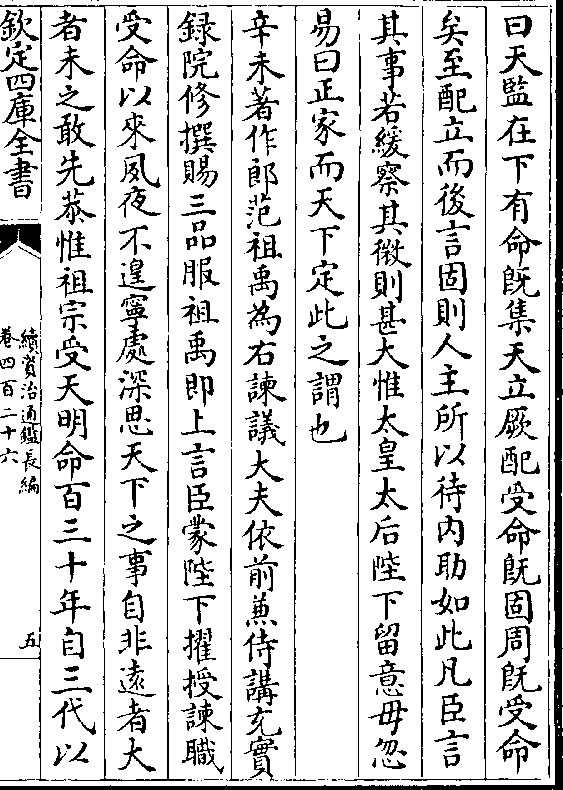 曰天監在下有命既集天立厥配受命既固周既受命
矣至配立而後言固則人主所以待内助如此凡臣言
其事若緩察其微則甚大惟太皇太后陛下留意毋忽
易曰正家而天下定此之謂也
辛未著作郎范祖禹為右諫議大夫依前兼侍講充實
録院修撰賜三品服祖禹即上言臣蒙陛下擢授諫職
受命以來夙夜不遑寧處深思天下之事自非遠者大
者未之敢先恭惟祖宗受天明命百三十年自三代以
欽定四庫全書
續資治通鑑長編
卷四百二十六
五